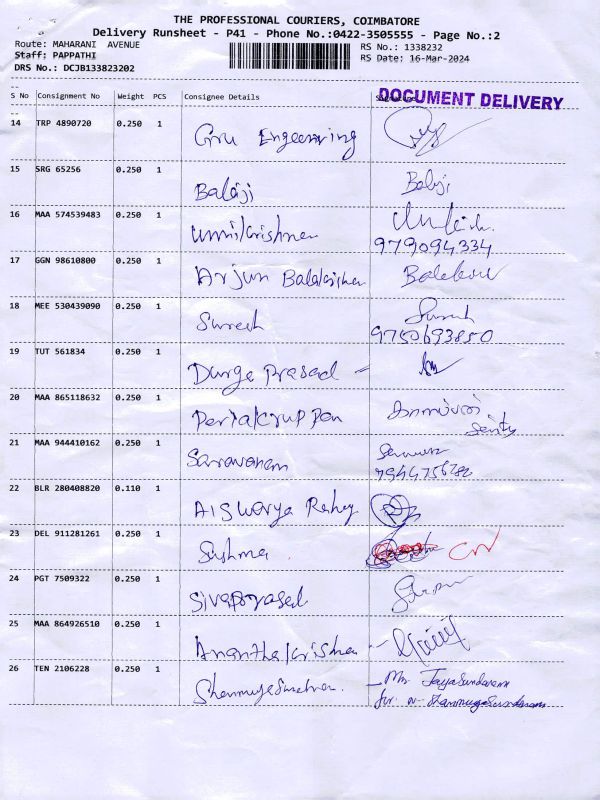 THE PROFESSIONAL COURIERS, COIMBATORE
Delivery Runsheet - P41 - Phone No.:0422-3505555 - Page No.:2
Route: MAHARANI AVENUE
RS No.: 1338232
Staff: PAPPATHI
RS Date: 16-Mar-2024
DRS No.: DCJB133823202
S No Consignment No Weight PCS Consignee Details
DOCUMENT DELIVERY
14 TRP 4890720 0.250 1
15 SRG 65256 0.250 1 Balaji Balaji
16 MAA 574539483 0.250 1 Unnikrishnan
979094334
17 GGN 98610800 0.250 1 Arjun Balakrishnan
18 MEE 530439090 0.250 1 Suresh Suresh
9750693850
19 TUT 561834 0.250 1 Durga Prasad -
20 MAA 865118632 0.250 1 Periakruppan
21 MAA 944410162 0.250 1 Saravanan
22 BLR 280408820 0.110 1 Aiswarya
23 DEL 911281261 0.250 1 Sushma
24 PGT 7509322 0.250 1 Sivaprasad
25 MAA 864926510 0.250 1 Ananthakrishnan
26 TEN 2106228 0.250 1 - Mr Jayasundaram
for Shanmugasundaram